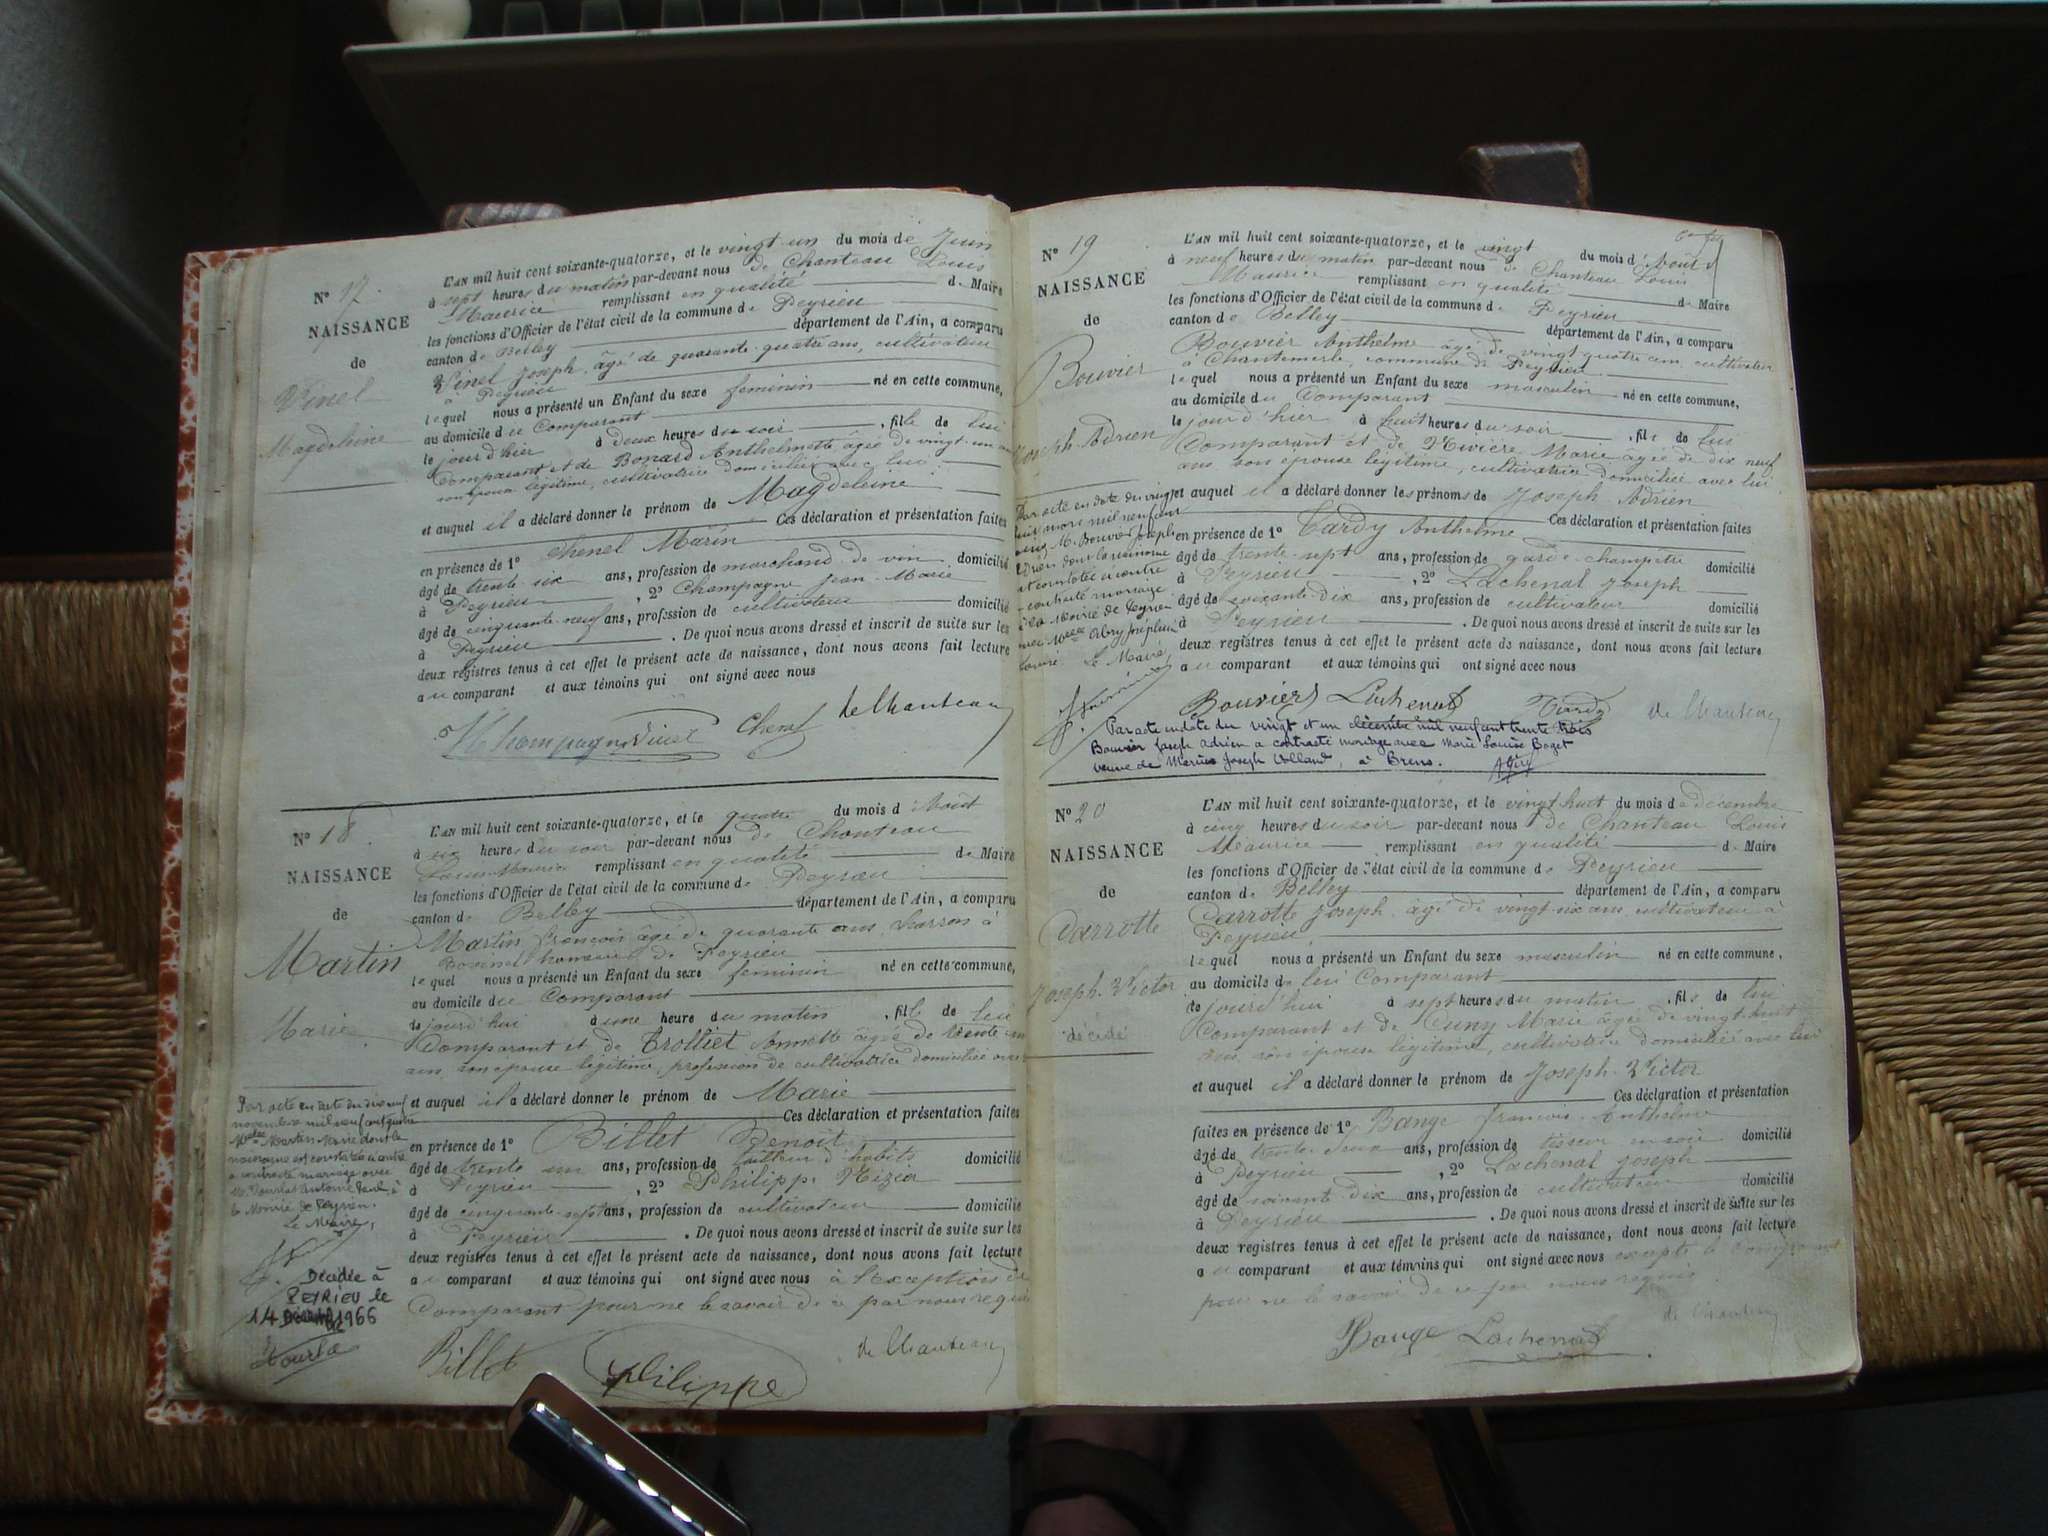 N° 17.
NAISSANCE
de
Vinel
Magdeleine
L'AN mil huit cent soixante-quatorze, et le vingt un du mois de Juin
à sept heures du matin par-devant nous de Chanteau Louis
Maurice remplissant en qualité de Maire
les fonctions d'Officier de l'état civil de la commune de Peyrieu
canton de Belley département de l'Ain, a comparu
Vinel Joseph, âgé de quarante-quatre ans, cultivateur
à Peyrieu
lequel nous a présenté un Enfant du sexe feminin né en cette commune,
au domicile du Comparant
le jour d'hier à deux heures du soir, fille de lui
Comparant et de Bonard Anthelmette âgée de vingt-un ans
son épouse légitime, cultivatrice domiciliée avec lui
et auquel il a déclaré donner le prénom de Magdeleine
Ces déclaration et présentation faites
en présence de 1° Chenel Marin
âgé de trente-six ans, profession de marchand de vin domicilié
à Peyrieu, 2° Champagne Jean-Marie
âgé de cinquante-neuf ans, profession de cultivateur domicilié
à Peyrieu. De quoi nous avons dressé et inscrit de suite sur les
deux registres tenus à cet effet le présent acte de naissance, dont nous avons fait lecture
au comparant et aux témoins qui ont signé avec nous
Champagne Vinel Chenel de Chanteau
N° 18.
NAISSANCE
de
Martin
Marie
L'AN mil huit cent soixante-quatorze, et le quatre du mois d'Aout
à six heures du soir par-devant nous de Chanteau
Louis-Maurice remplissant en qualité de Maire
les fonctions d'Officier de l'état civil de la commune de Peyrieu
canton de Belley département de l'Ain, a comparu
Martin françois âgé de quarante ans, charron à
hameau de Peyrieu
lequel nous a présenté un Enfant du sexe feminin né en cette commune,
au domicile du Comparant
le jourd'hui à une heure du matin, fille de lui
Comparant et de Trolliet âgée de trente un
ans, son épouse légitime, profession de cultivatrice domiciliée avec
et auquel il a déclaré donner le prénom de Marie
Ces déclaration et présentation faites
en présence de 1° Billet Benoit
âgé de trente un ans, profession de tailleur d'habits domicilié
à Peyrieu, 2° Philippe Nizia
âgé de cinquante-sept ans, profession de cultivateur domicilié
à Peyrieu. De quoi nous avons dressé et inscrit de suite sur les
deux registres tenus à cet effet le présent acte de naissance, dont nous avons fait lecture
au comparant et aux témoins qui ont signé avec nous à l'exception du
Comparant pour ne le savoir de ce par nous requis
Billet Philippe de Chanteau
Par acte en date du dix neuf
novembre mil neuf cent quatre
Martin Marie dont la
naissance est constatée ci-contre
a contracté mariage avec
M. Antoine Paul à
la Mairie de Peyrieu.
Le Maire,
Décédée à
PEYRIEU le
14 1966
N° 19
NAISSANCE
de
Bouvier
Joseph-Adrien
L'AN mil huit cent soixante-quatorze, et le vingt du mois d'Aout
à neuf heures du matin par-devant nous de Chanteau Louis
Maurice remplissant en qualité de Maire
les fonctions d'Officier de l'état civil de la commune de Peyrieu
canton de Belley département de l'Ain, a comparu
Bouvier Anthelme âgé de vingt quatre ans, cultivateur
à Chantemerle, commune de Peyrieu
lequel nous a présenté un Enfant du sexe masculin né en cette commune,
au domicile du Comparant
le jour d'hier à huit heures du soir, fils de lui
Comparant et de Rivière Marie âgée de dix neuf
ans, son épouse légitime, cultivatrice domiciliée avec lui
et auquel il a déclaré donner les prénoms de Joseph-Adrien
Ces déclaration et présentation faites
en présence de 1° Tardy Anthelme
âgé de trente-sept ans, profession de garde-champêtre domicilié
à Peyrieu, 2° Lachenal Joseph
âgé de soixante-dix ans, profession de cultivateur domicilié
à Peyrieu. De quoi nous avons dressé et inscrit de suite sur les
deux registres tenus à cet effet le présent acte de naissance, dont nous avons fait lecture
au comparant et aux témoins qui ont signé avec nous
Bouvier Lachenal Tardy de Chanteau
Par acte en date du vingt
huit mars mil neuf cent
M. Bouvier Joseph
Adrien dont la naissance
est constatée ci-contre
a contracté mariage
à la Mairie de Peyrieu
avec Melle
Le Maire,
Par acte en date du vingt et un décembre mil neuf cent trente trois
Bouvier Joseph Adrien a contracté mariage avec Marie Louise Boget
veuve de Marius Joseph Volland, à Brens.
N° 20
NAISSANCE
de
Darrotte
Joseph-Victor
décédé
L'AN mil huit cent soixante-quatorze, et le vingt huit du mois de décembre
à cinq heures du soir par-devant nous de Chanteau Louis
Maurice remplissant en qualité de Maire
les fonctions d'Officier de l'état civil de la commune de Peyrieu
canton de Belley département de l'Ain, a comparu
Darrotte Joseph âgé de vingt-six ans, cultivateur à
Peyrieu
lequel nous a présenté un Enfant du sexe masculin né en cette commune,
au domicile de lui Comparant
le jourd'hui à sept heures du matin, fils de lui
Comparant et de Cuny Marie âgée de vingt-huit
ans, son épouse légitime, cultivatrice domiciliée avec lui
et auquel il a déclaré donner le prénom de Joseph-Victor
Ces déclaration et présentation
faites en présence de 1° Bange françois-Anthelme
âgé de trente-deux ans, profession de tisseur en soie domicilié
à Peyrieu, 2° Lachenal Joseph
âgé de soixante-dix ans, profession de cultivateur domicilié
à Peyrieu. De quoi nous avons dressé et inscrit de suite sur les
deux registres tenus à cet effet le présent acte de naissance, dont nous avons fait lecture
au comparant et aux témoins qui ont signé avec nous excepté le comparant
pour ne le savoir de ce par nous requis
Bange Lachenal de Chanteau